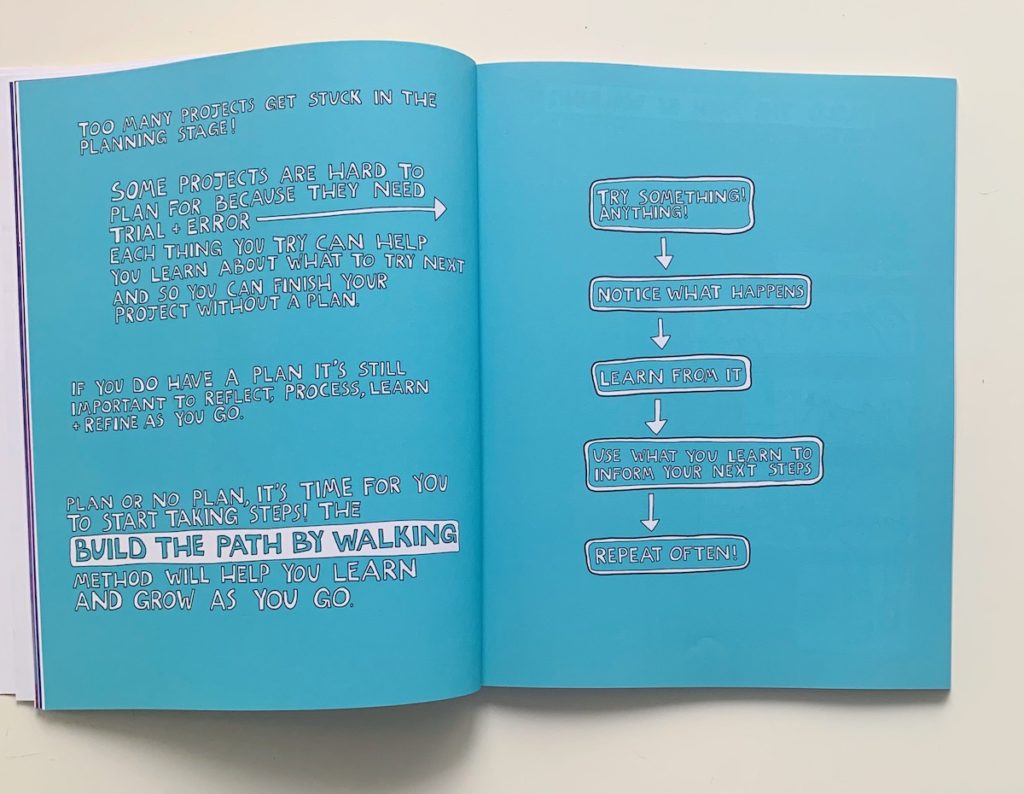 TOO MANY PROJECTS GET STUCK IN THE
PLANNING STAGE!
SOME PROJECTS ARE HARD TO
PLAN FOR BECAUSE THEY NEED
TRIAL + ERROR
EACH THING YOU TRY CAN HELP
YOU LEARN ABOUT WHAT TO TRY NEXT
AND SO YOU CAN FINISH YOUR
PROJECT WITHOUT A PLAN.
IF YOU DO HAVE A PLAN IT'S STILL
IMPORTANT TO REFLECT, PROCESS, LEARN
+ REFINE AS YOU GO.
PLAN OR NO PLAN, IT'S TIME FOR YOU
TO START TAKING STEPS! THE
BUILD THE PATH BY WALKING
METHOD WILL HELP YOU LEARN
AND GROW AS YOU GO.
TRY SOMETHING!
ANYTHING!
NOTICE WHAT HAPPENS
LEARN FROM IT
USE WHAT YOU LEARN TO
INFORM YOUR NEXT STEPS
REPEAT OFTEN!